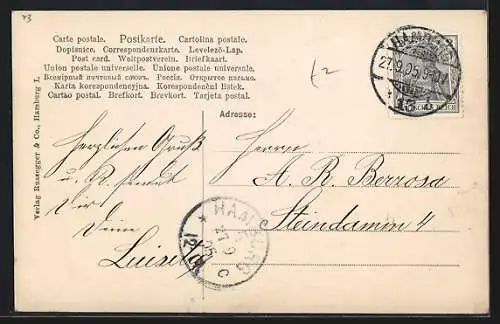 Carte postale. Postkarte. Cartolina postale.
Dopisnice. Correspondenzkarte. Levelező-Lap.
Post card. Weltpostverein. Briefkaart.
Union postale universelle. Unione postale universale.
Всемірный почтовый союзъ. Россія. Открытое письмо.
Karta korespondencyjna. Korespondenční lístek.
Cartao postal. Brefkort. Brevkort. Tarjeta postal.
HAMBURG
27.9.05.9-10V
Adresse:
Verlag Ruseogger & Co., Hamburg 1.
Herzlichen Gruß
u.
Deine
Luise
Herrn
A. R. Berzosa
Steindamm 4
HAMBURG
27 9
05
12
C